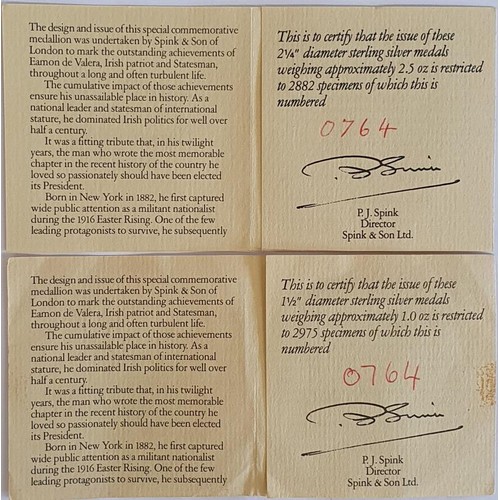 The design and issue of this special commemorative
medallion was undertaken by Spink & Son of
London to mark the outstanding achievements of
Eamon de Valera, Irish patriot and Statesman,
throughout a long and often turbulent life.
The cumulative impact of those achievements
ensure his unassailable place in history. As a
national leader and statesman of international
stature, he dominated Irish politics for well over
half a century.
It was a fitting tribute that, in his twilight
years, the man who wrote the most memorable
chapter in the recent history of the country he
loved so passionately should have been elected
its President.
Born in New York in 1882, he first captured
wide public attention as a militant nationalist
during the 1916 Easter Rising. One of the few
leading protagonists to survive, he subsequently
This is to certify that the issue of these
2¼" diameter sterling silver medals
weighing approximately 2.5 oz is restricted
to 2882 specimens of which this is
numbered
0764
P. J. Spink
Director
Spink & Son Ltd.
The design and issue of this special commemorative
medallion was undertaken by Spink & Son of
London to mark the outstanding achievements of
Eamon de Valera, Irish patriot and Statesman,
throughout a long and often turbulent life.
The cumulative impact of those achievements
ensure his unassailable place in history. As a
national leader and statesman of international
stature, he dominated Irish politics for well over
half a century.
It was a fitting tribute that, in his twilight
years, the man who wrote the most memorable
chapter in the recent history of the country he
loved so passionately should have been elected
its President.
Born in New York in 1882, he first captured
wide public attention as a militant nationalist
during the 1916 Easter Rising. One of the few
leading protagonists to survive, he subsequently
This is to certify that the issue of these
1½" diameter sterling silver medals
weighing approximately 1.0 oz is restricted
to 2975 specimens of which this is
numbered
0764
P. J. Spink
Director
Spink & Son Ltd.